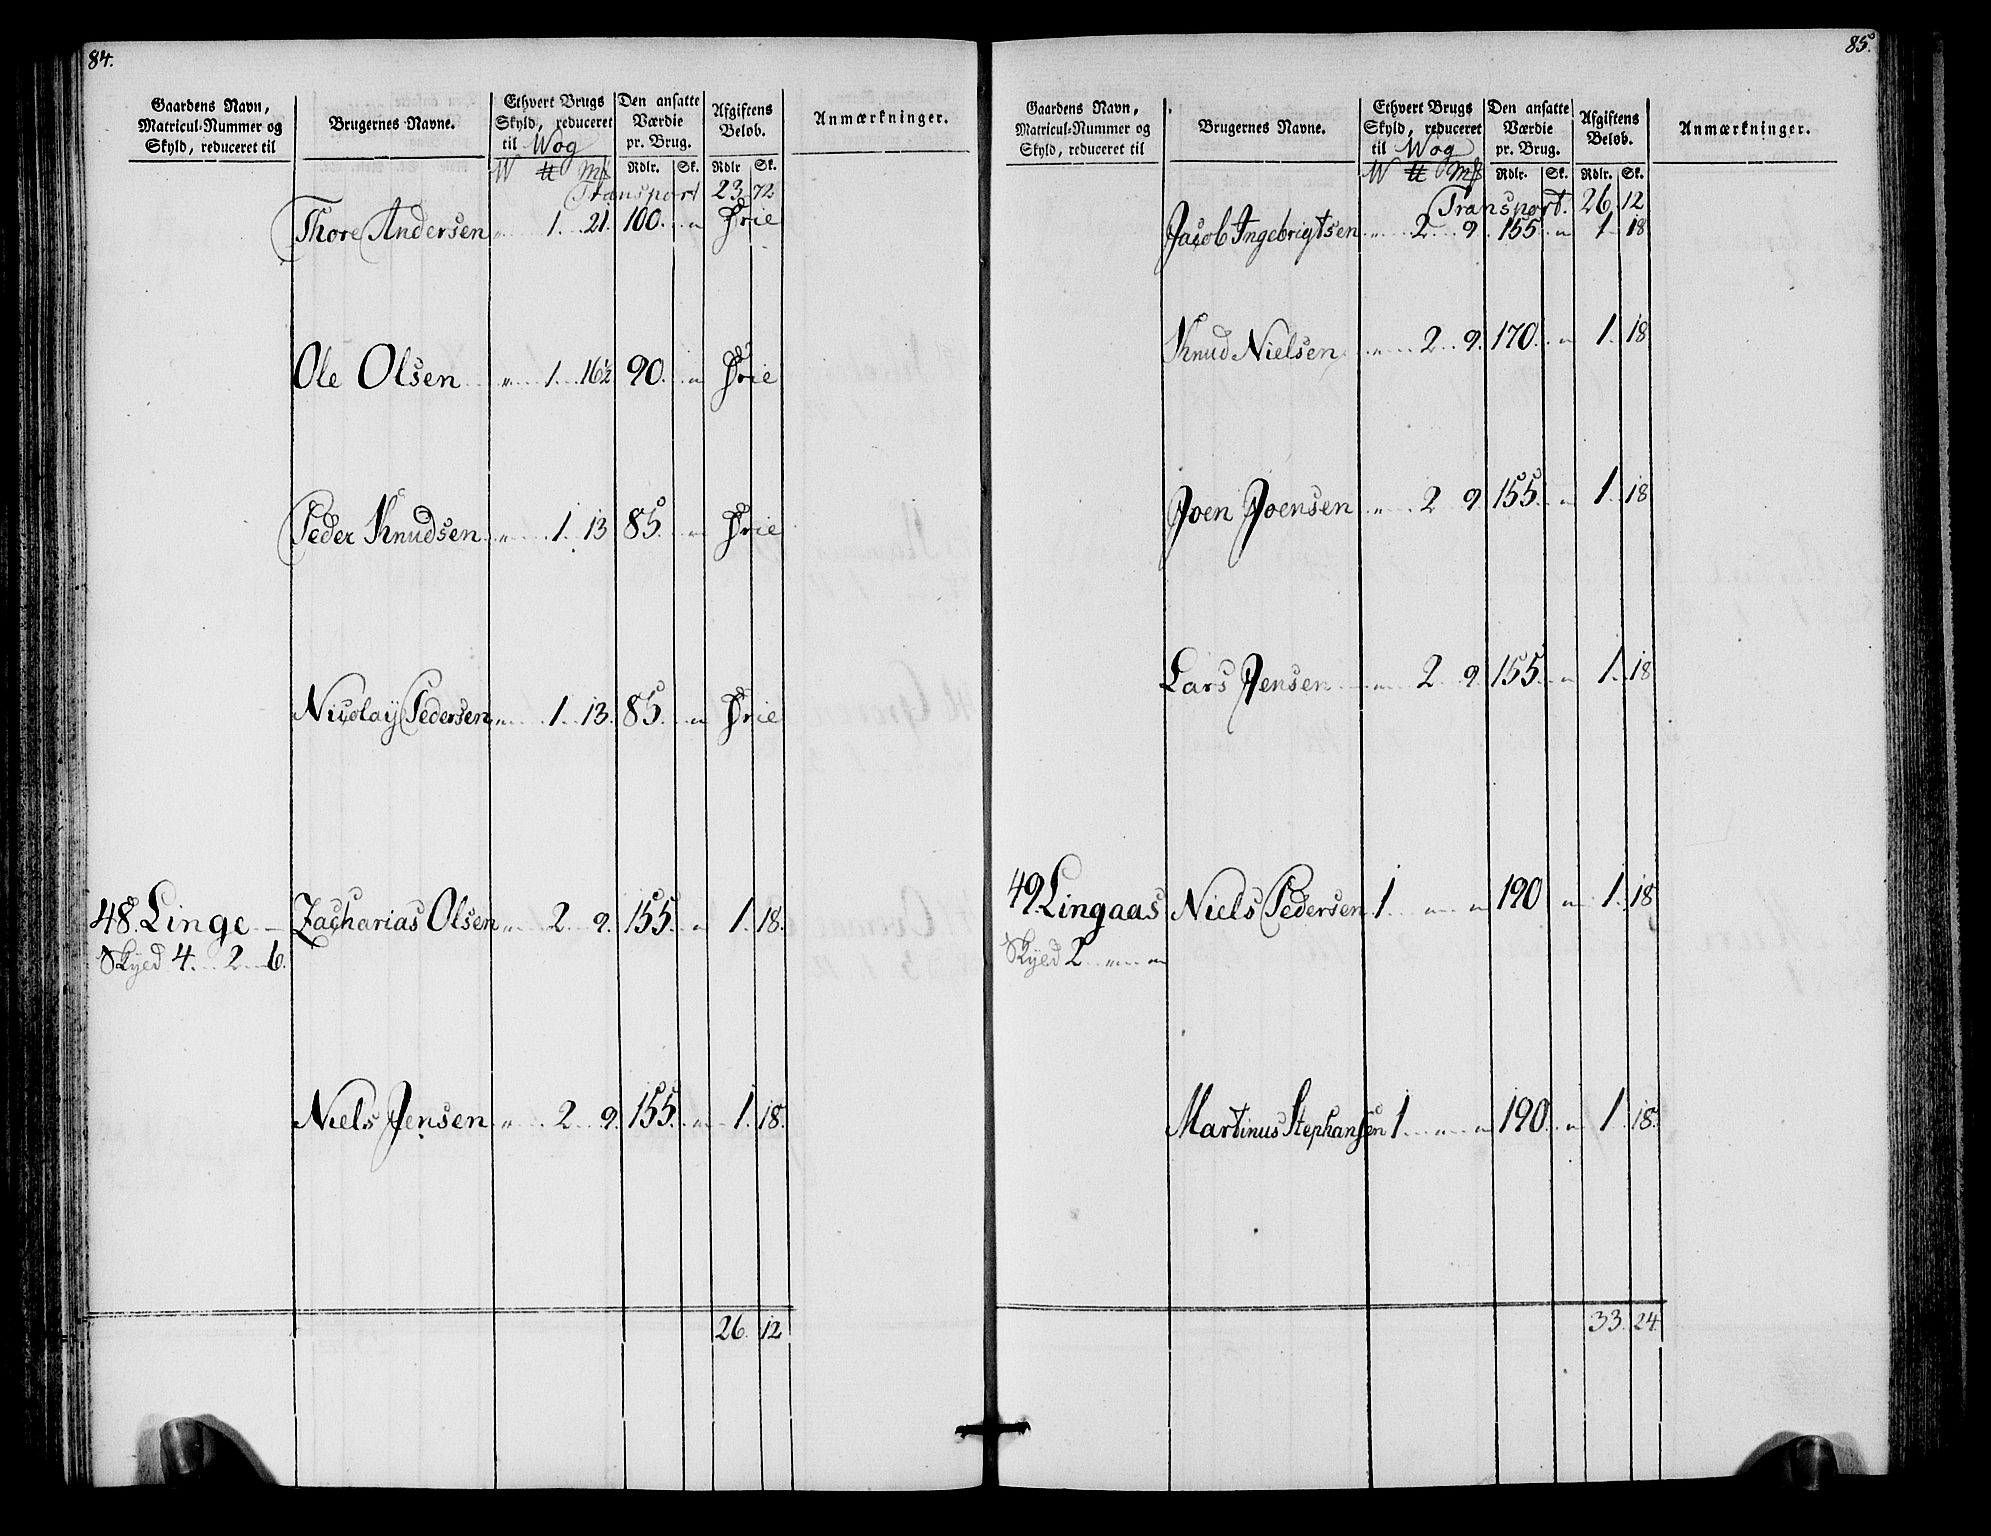 84.
Gaardens Navn, Matricul-Nummer og Skyld, reduceret til | Brugernes Navne. | Ethvert Brugs Skyld, reduceret til Wog | Den ansatte Værdie pr. Brug. | Afgiftens Beløb. | Anmærkninger.
W ℔ Mk | Rdlr. Sk. | Rdlr Sk.
Transport 23 72
Thore Andersen „ 1 21. 100. „ Frie
Ole Olsen „ 1 16½ 90. „ Frie
Peder Knudsen „ 1 13 85. „ Frie
Nicolaÿ Pedersen „ 1 13. 85. „ Frie
48. Linge Zacharias Olsen „ 2 9. 155. „ 1 18.
Skyld 4 2 6.
Niels Jensen „ 2 9. 155. „ 1 18.
26. 12
85.
Gaardens Navn, Matricul-Nummer og Skyld, reduceret til | Brugernes Navne. | Ethvert Brugs Skyld, reduceret til Wog | Den ansatte Værdie pr. Brug. | Afgiftens Beløb. | Anmærkninger.
W ℔ Mk | Rdlr. Sk. | Rdlr. Sk.
Transport. 26. 12
Jacob Ingebrigtsen „ 2 9. 155. „ 1 18
Knud Nielsen „ 2 9. 170. „ 1. 18
Joen Joensen „ 2 9 155. „ 1. 18
Lars Jensen „ 2 9. 155. „ 1. 18
49. Lingaas Niels Pedersen 1 „ „ 190 „ 1. 18
Skyld 2 „ „
Martinus Stephansen 1 „ „ 190. „ 1. 18.
33. 24.